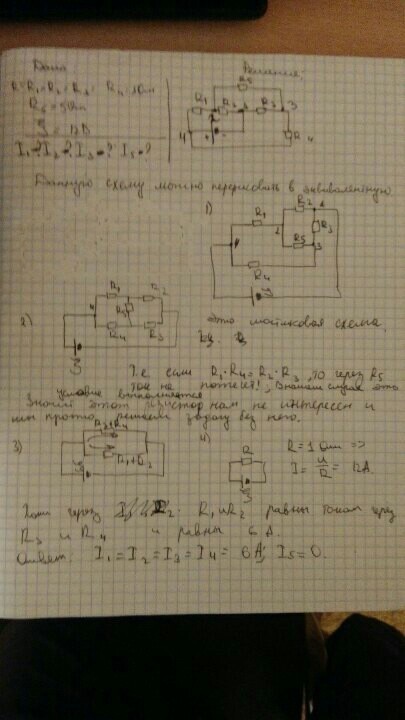 Дано
R=R₁=R₂=R₃= R₄=1 Ом
R₅=5 Ом
ℰ=12 В
I₁-? I₂-? I₃-? I₅-?
Решение:
R₅
R₁ R₂ R₃ 3
4 + - R₄
Данную схему можно перерисовать в эквивалентную
1)
R₂
R₁ R₃
R₅ 3
R₄
ℰ
2)
R₁ R₂
R₅
R₄ R₃
ℰ
Это мостиковая схема.
Т.к. если R₁·R₄=R₂·R₃, то через R₅
ток не потечёт!, В нашем случае это
условие выполняется
Значит этот резистор нам не интересен и
мы просто решаем задачу без него.
3)
R₁+R₂
ℰ
4)
R
ℰ
R=1 Ом =>
I = U/R = 12A
Токи через R₁ и R₂ равны токам через
R₃ и R₄ и равны 6 А.
Ответ: I₁=I₂=I₃=I₄= 6 A; I₅=0.